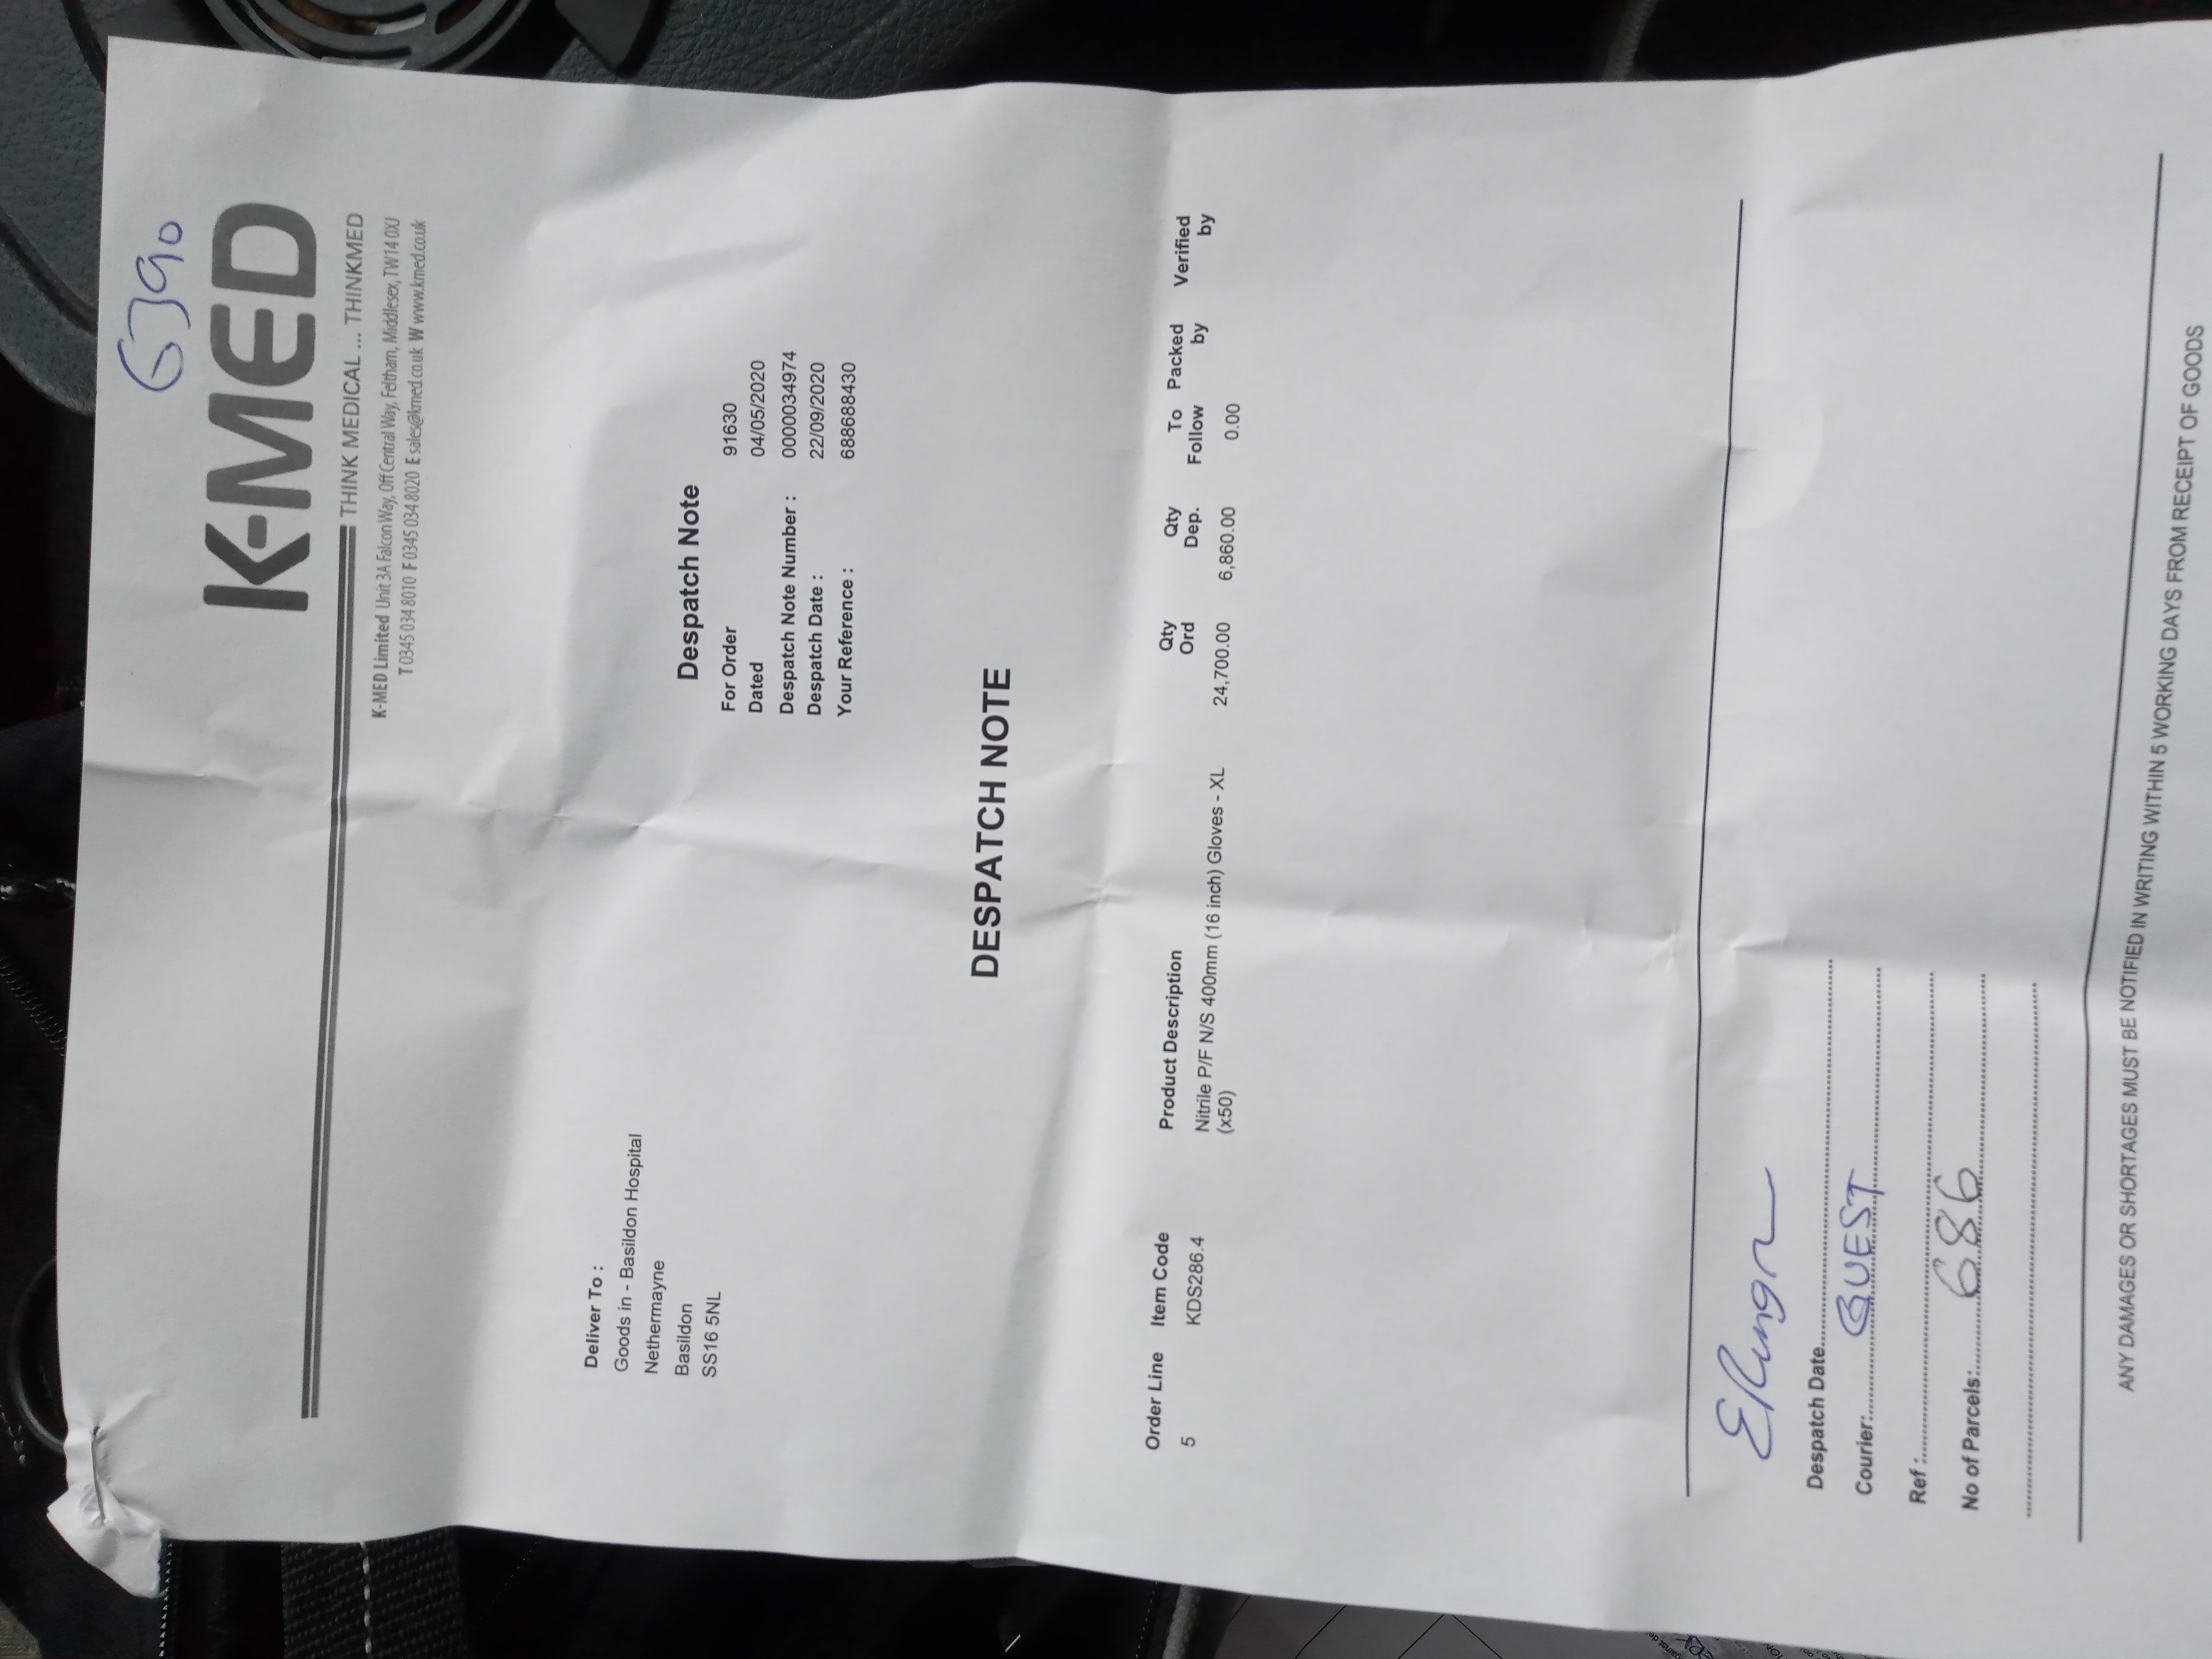 6390
K-MED
THINK MEDICAL ... THINKMED
K-MED Limited Unit 3A Falcon Way, Off Central Way, Feltham, Middlesex, TW14 0XJ
T 0345 034 8010 F 0345 034 8020 E sales@kmed.co.uk W www.kmed.co.uk
Deliver To :
Goods in - Basildon Hospital
Nethermayne
Basildon
SS16 5NL
Despatch Note
For Order 91630
Dated 04/05/2020
Despatch Note Number : 0000034974
Despatch Date : 22/09/2020
Your Reference : 688688430
DESPATCH NOTE
Order Line Item Code Product Description Qty Ord Qty Dep. To Follow Packed by Verified by
5 KDS286.4 Nitrile P/F N/S 400mm (16 inch) Gloves - XL 24,700.00 6,860.00 0.00
(x50)
Despatch Date
Courier: QUEST
Ref :
No of Parcels: 686
ANY DAMAGES OR SHORTAGES MUST BE NOTIFIED IN WRITING WITHIN 5 WORKING DAYS FROM RECEIPT OF GOODS